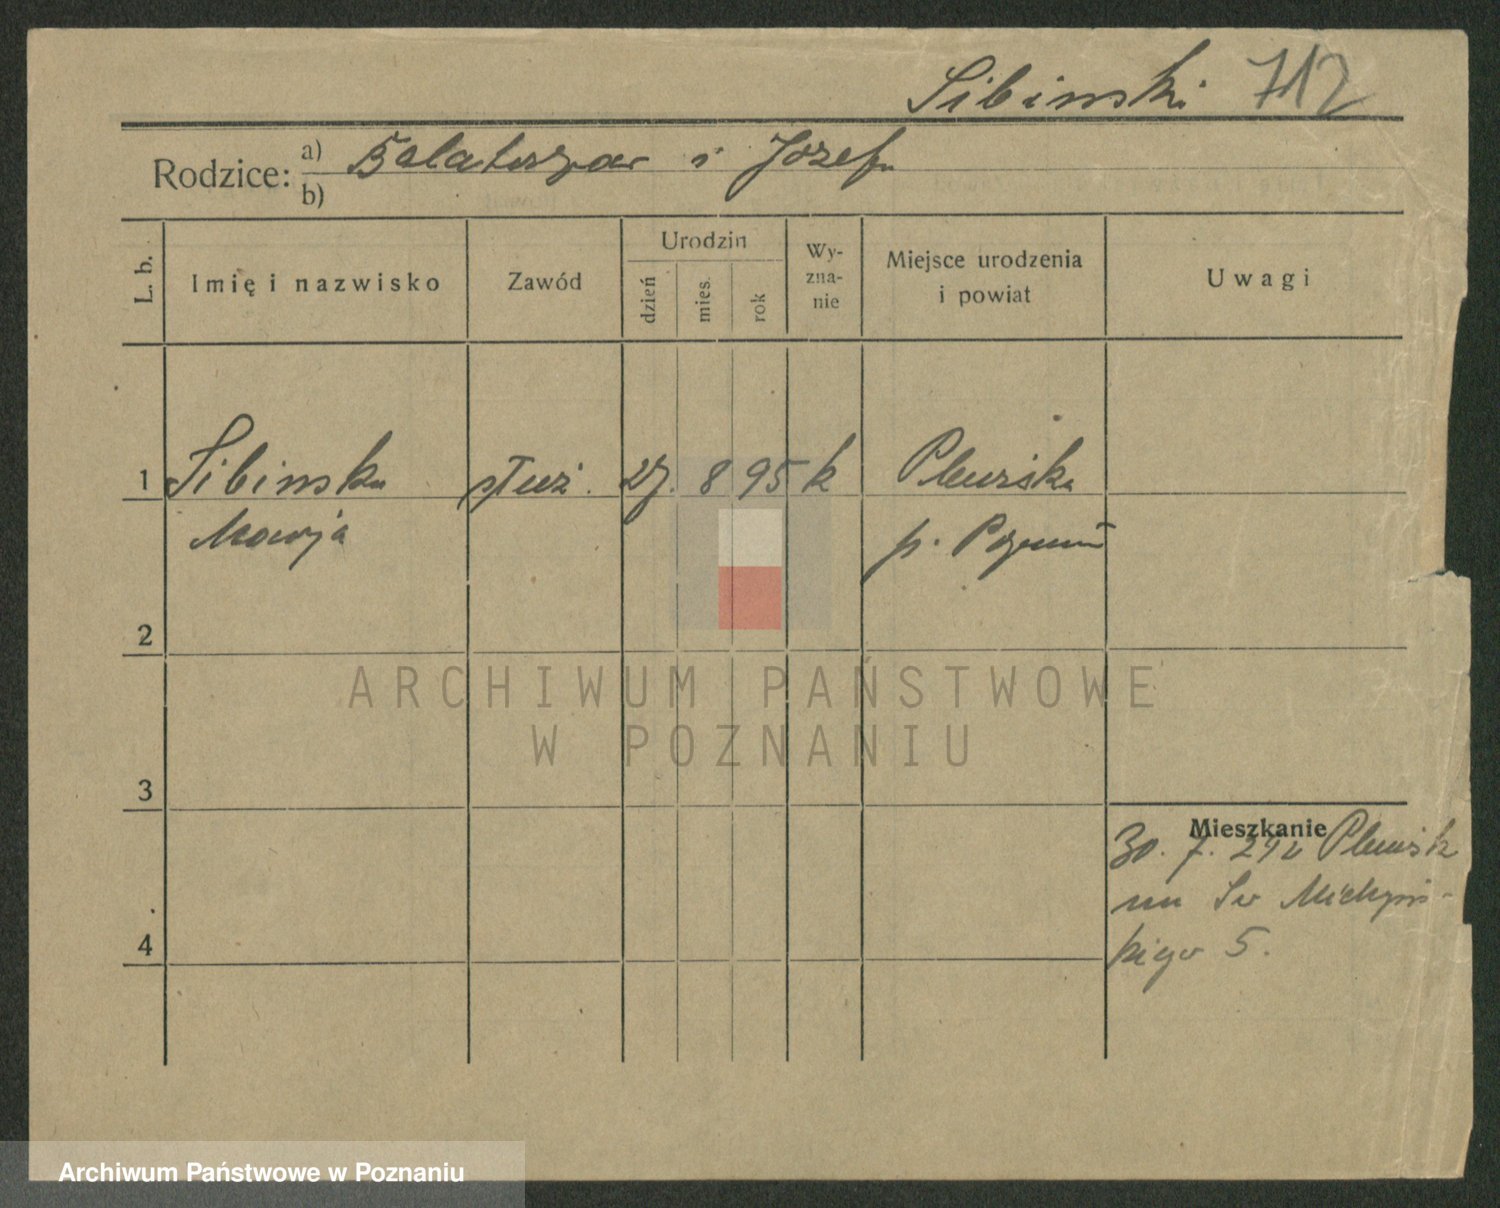 Sibinski 712
Rodzice: a) Balataszar i Józefa
b)
L. b.
Imię i nazwisko
Zawód
Urodzin
dzień
mies.
rok
Wy-
zna-
nie
Miejsce urodzenia
i powiat
Uwagi
1 Sibinska służ. 27. 8 95 k
Marja
Plewiska
p. Poznań
2
3
4
Mieszkanie
30. 7. 21 z Plewisk
5.
ARCHIWUM PAŃSTWOWE
W POZNANIU
Archiwum Państwowe w Poznaniu